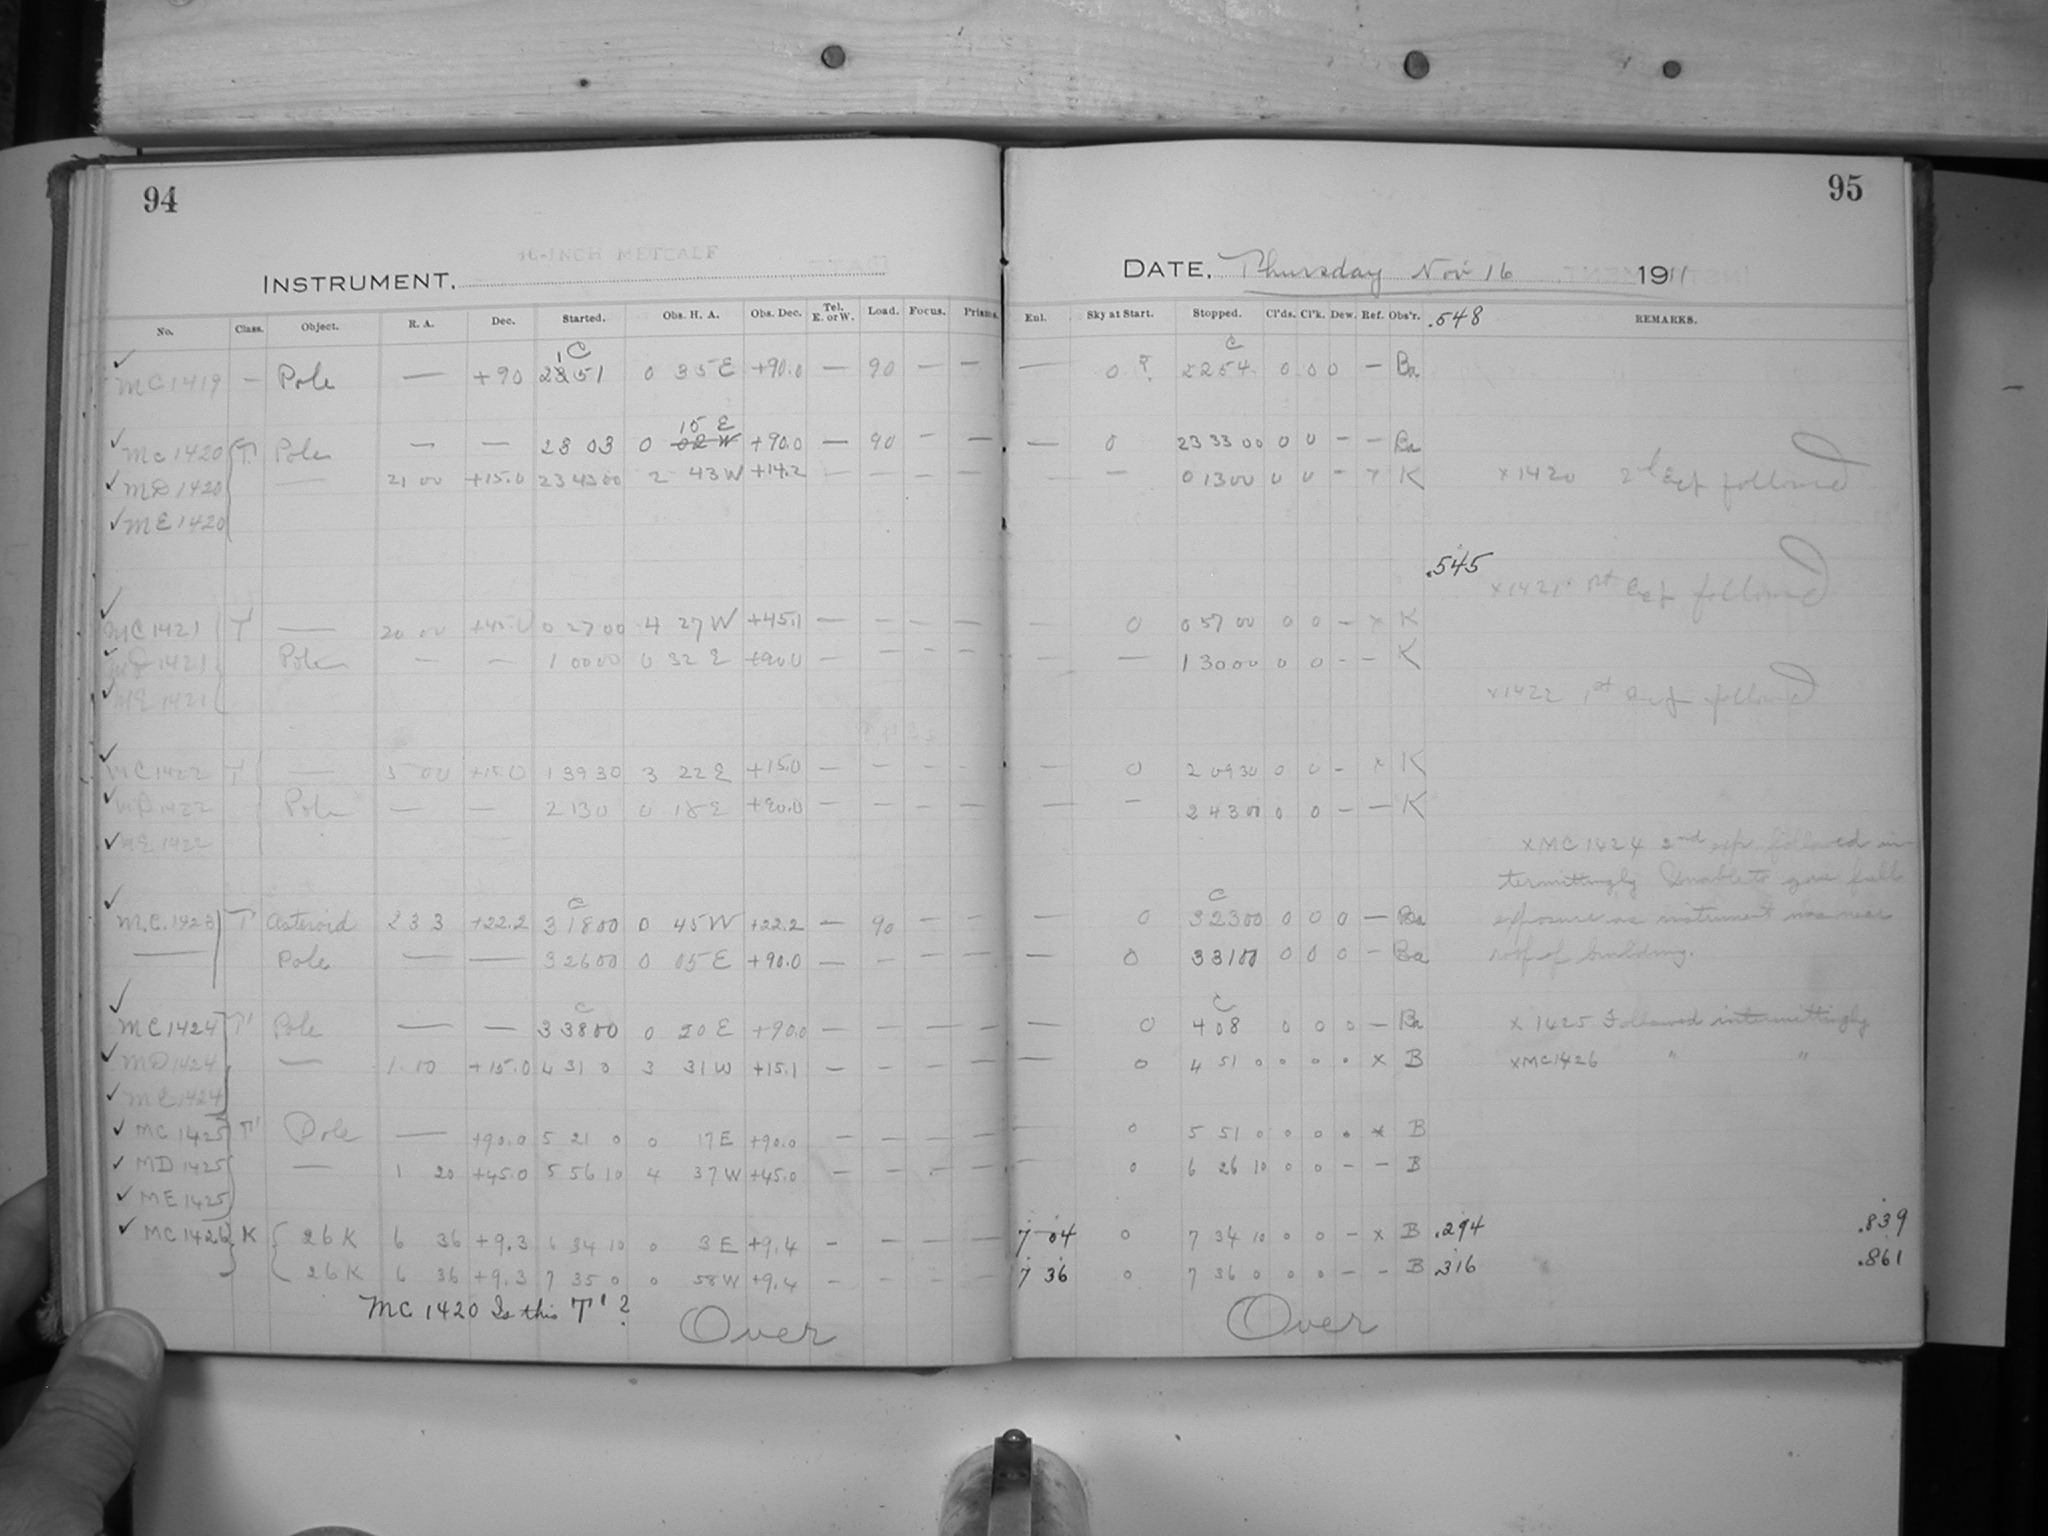 94
95
16-INCH METCALF
INSTRUMENT.
DATE. Thursday Nov 16 1911
No. Class. Object. R. A. Dec. Started. Obs. H. A. Obs. Dec. Tel. E. or W. Load. Focus. Prisms. Eul. Sky at Start. Stopped. Cl'ds. Cl'k. Dew. Ref. Obs'r. .548 REMARKS.
✓ MC1419 — Pole — +90 C 2251 0 35 E +90.0 — 90 — — — 0 ? C 2254 0 0 0 — Ba
✓ MC 1420 T' Pole — — 23 03 0 02 W 10 E +90.0 — 90 — — — 0 23 33 00 0 0 — — Ba
✓ MD 1420 — 21 00 +15.0 23 43 00 2 43 W +14.2 — — — — — — 0 13 00 0 0 — x K x1420 2d Exp followed
✓ ME 1420
.545
x1421 1st Exp followed
✓ MC 1421 T' — 20 00 +45.0 0 27 00 4 27 W +45.1 — — — — — 0 0 57 00 0 0 — x K
✓ MD 1421 Pole — — 1 00 00 0 32 E +90.0 — — — — — — 1 30 00 0 0 — — K
✓ ME 1421 x1422 1st Exp followed
✓ MC 1422 T' — 5 00 +15.0 1 39 30 3 22 E +15.0 — — — — — 0 2 09 30 0 0 — x K
✓ MD 1422 Pole — — 2 13 0 0 18 E +90.0 — — — — — — 2 43 00 0 0 — — K
✓ ME 1422
xMC 1424 2nd exp. followed in-
termittingly Unable to give full
exposure as instrument was near
roof of building.
✓ M.C. 1423 T' Asteroid 2 33 +22.2 C 3 18 00 0 45 W +22.2 — 90 — — — 0 C 3 23 00 0 0 0 — Ba
— Pole — — 3 26 00 0 05 E +90.0 — — — — — 0 3 31 00 0 0 0 — Ba
✓ MC 1424 T' Pole — — C 3 38 00 0 20 E +90.0 — — — — — 0 C 4 08 0 0 0 — Ba x 1425 Followed intermittingly
✓ MD 1424 — 1 10 +15.0 4 31 0 3 31 W +15.1 — — — — — 0 4 51 0 0 0 0 x B xMC1426 " "
✓ ME 1424
✓ MC 1425 T' Pole — +90.0 5 21 0 0 17 E +90.0 — — — — — 0 5 51 0 0 0 0 x B
✓ MD 1425 — 1 20 +45.0 5 56 10 4 37 W +45.0 — — — — — 0 6 26 10 0 0 — — B
✓ ME 1425
✓ MC 1426 K 26 K 6 36 +9.3 6 34 10 0 3 E +9.4 — — — — 7 04 0 7 34 10 0 0 — x B .294 .839
26 K 6 36 +9.3 7 35 0 0 58 W +9.4 — — — — 7 36 0 7 36 0 0 0 — — B .316 .861
MC 1420 Is this T' ?
Over
Over